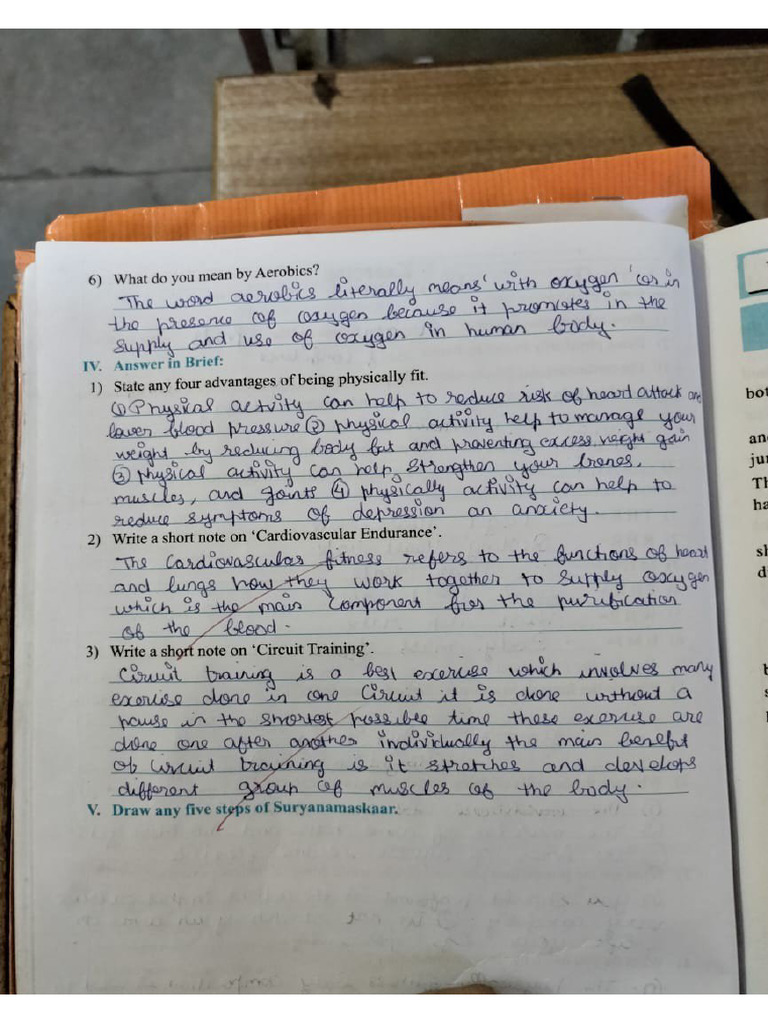 6) What do you mean by Aerobics?
The word aerobics literally means 'with oxygen' or in
the presence of oxygen because it promotes in the
supply and use of oxygen in human body.
IV. Answer in Brief:
1) State any four advantages of being physically fit.
① Physical activity can help to reduce risk of heard attack and
lower blood pressure ② physical activity help to manage your
weight by reducing body fat and preventing excess weight gain
③ physical activity can help strengthen your brones,
muscles, and joints ④ physically activity can help to
reduce symptoms of depression an anxiety.
2) Write a short note on 'Cardiovascular Endurance'.
The Cardiovascular fitness refers to the functions of heart
and lungs how they work together to supply oxygen
which is the main component for the purification
of the blood.
3) Write a short note on 'Circuit Training'.
Circuit training is a best exercise which involves many
exercise done in one circuit it is done without a
pause in the shortest possible time these exercise are
done one after another individually the main benefit
of circuit training is it stretches and develops
different group of muscles of the body.
V. Draw any five steps of Suryanamaskaar.
bot
an
jur
Th
ha
sl
d